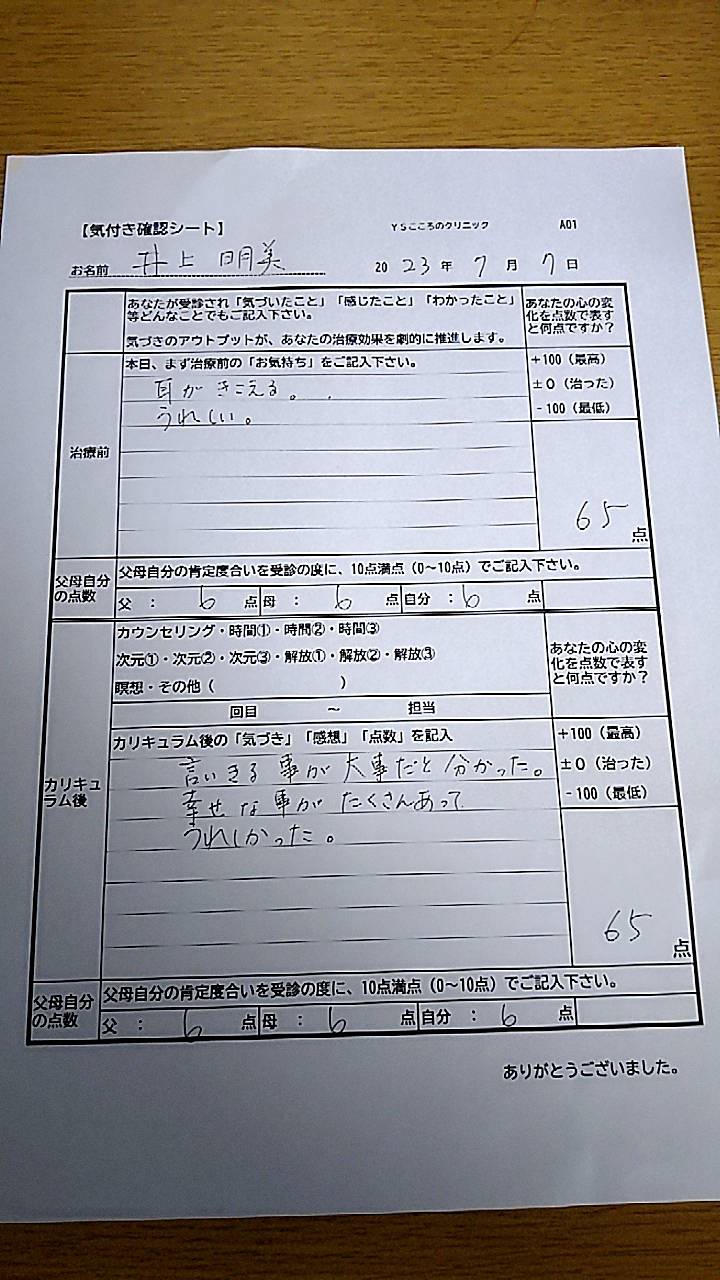 【気付き確認シート】 YSこころのクリニック A01
お名前 井上 明美 2023年 7月 7日
あなたが受診され「気づいたこと」「感じたこと」「わかったこと」
等どんなことでもご記入下さい。
気づきのアウトプットが、あなたの治療効果を劇的に推進します。
あなたの心の変
化を点数で表す
と何点ですか?
治療前
本日、まず治療前の「お気持ち」をご記入下さい。
耳がきこえる。
うれしい。
+100(最高)
±0(治った)
-100(最低)
65点
父母自分
の点数
父母自分の肯定度合いを受診の度に、10点満点(0~10点)でご記入下さい。
父 : 6 点 母 : 6 点 自分 : 6 点
カリキュ
ラム後
カウンセリング・時間①・時間②・時間③
次元①・次元②・次元③・解放①・解放②・解放③
瞑想・その他( )
回目 ~ 担当
あなたの心の変
化を点数で表す
と何点ですか?
カリキュラム後の「気づき」「感想」「点数」を記入
言いきる事が大事だと分かった。
幸せな事がたくさんあって
うれしかった。
+100(最高)
±0(治った)
-100(最低)
65点
父母自分
の点数
父母自分の肯定度合いを受診の度に、10点満点(0~10点)でご記入下さい。
父 : 6 点 母 : 6 点 自分 : 6 点
ありがとうございました。